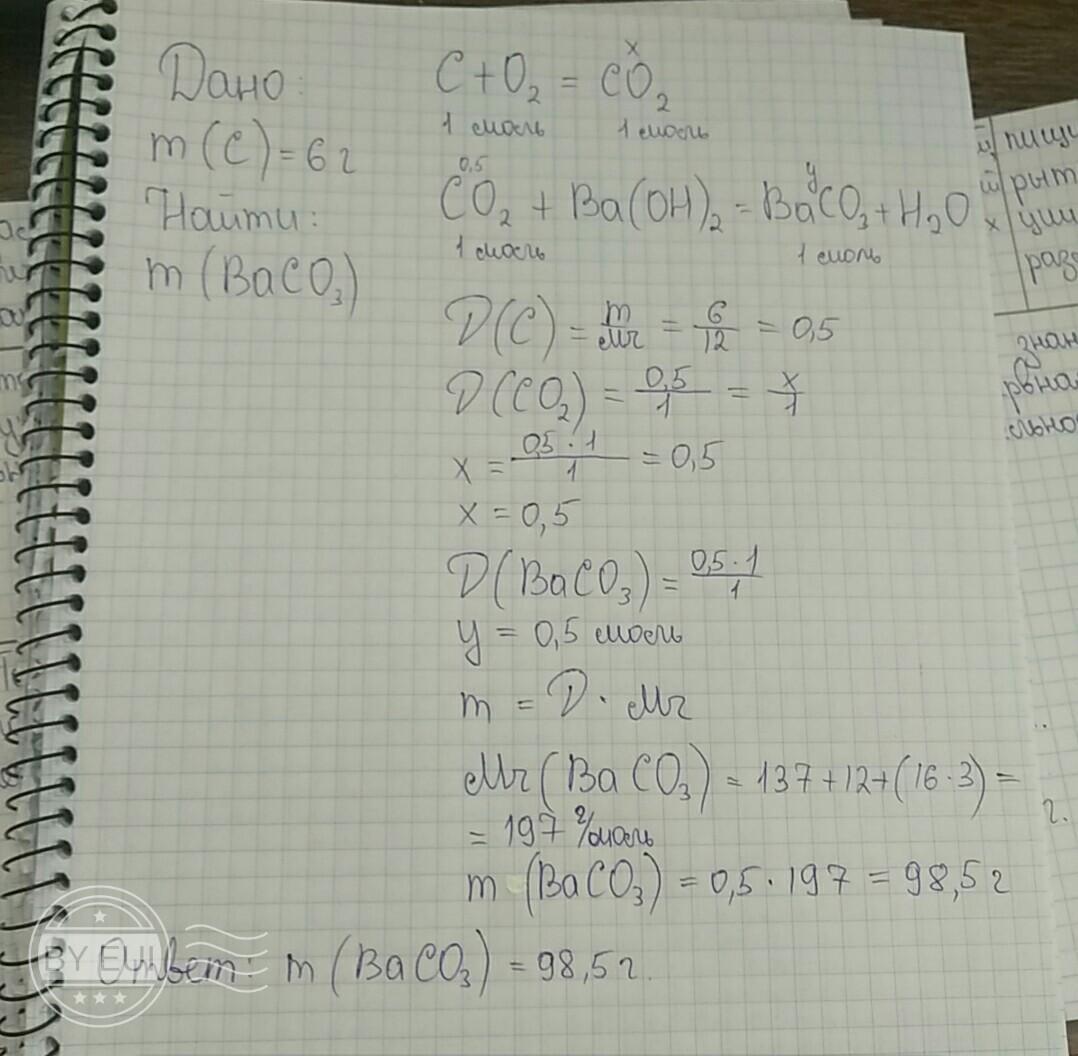 Дано:
m(C)=6г
Найти:
m(BaCO₃)
x
C+O₂ = CO₂
1 моль 1 моль
0,5 y
CO₂ + Ba(OH)₂ = BaCO₃ + H₂O
1 моль 1 моль
D(C) = m/Mr = 6/12 = 0,5
D(CO₂) = 0,5/1 = x/1
x = 0,5·1/1 = 0,5
x = 0,5
D(BaCO₃) = 0,5·1/1
y = 0,5 моль
m = D·Mr
Mr(BaCO₃) = 137+12+(16·3) =
= 197 г/моль
m (BaCO₃) = 0,5·197 = 98,5 г
Ответ: m(BaCO₃) = 98,5 г.
пищ
рыт
x
уши
разв
знан
льно
г.